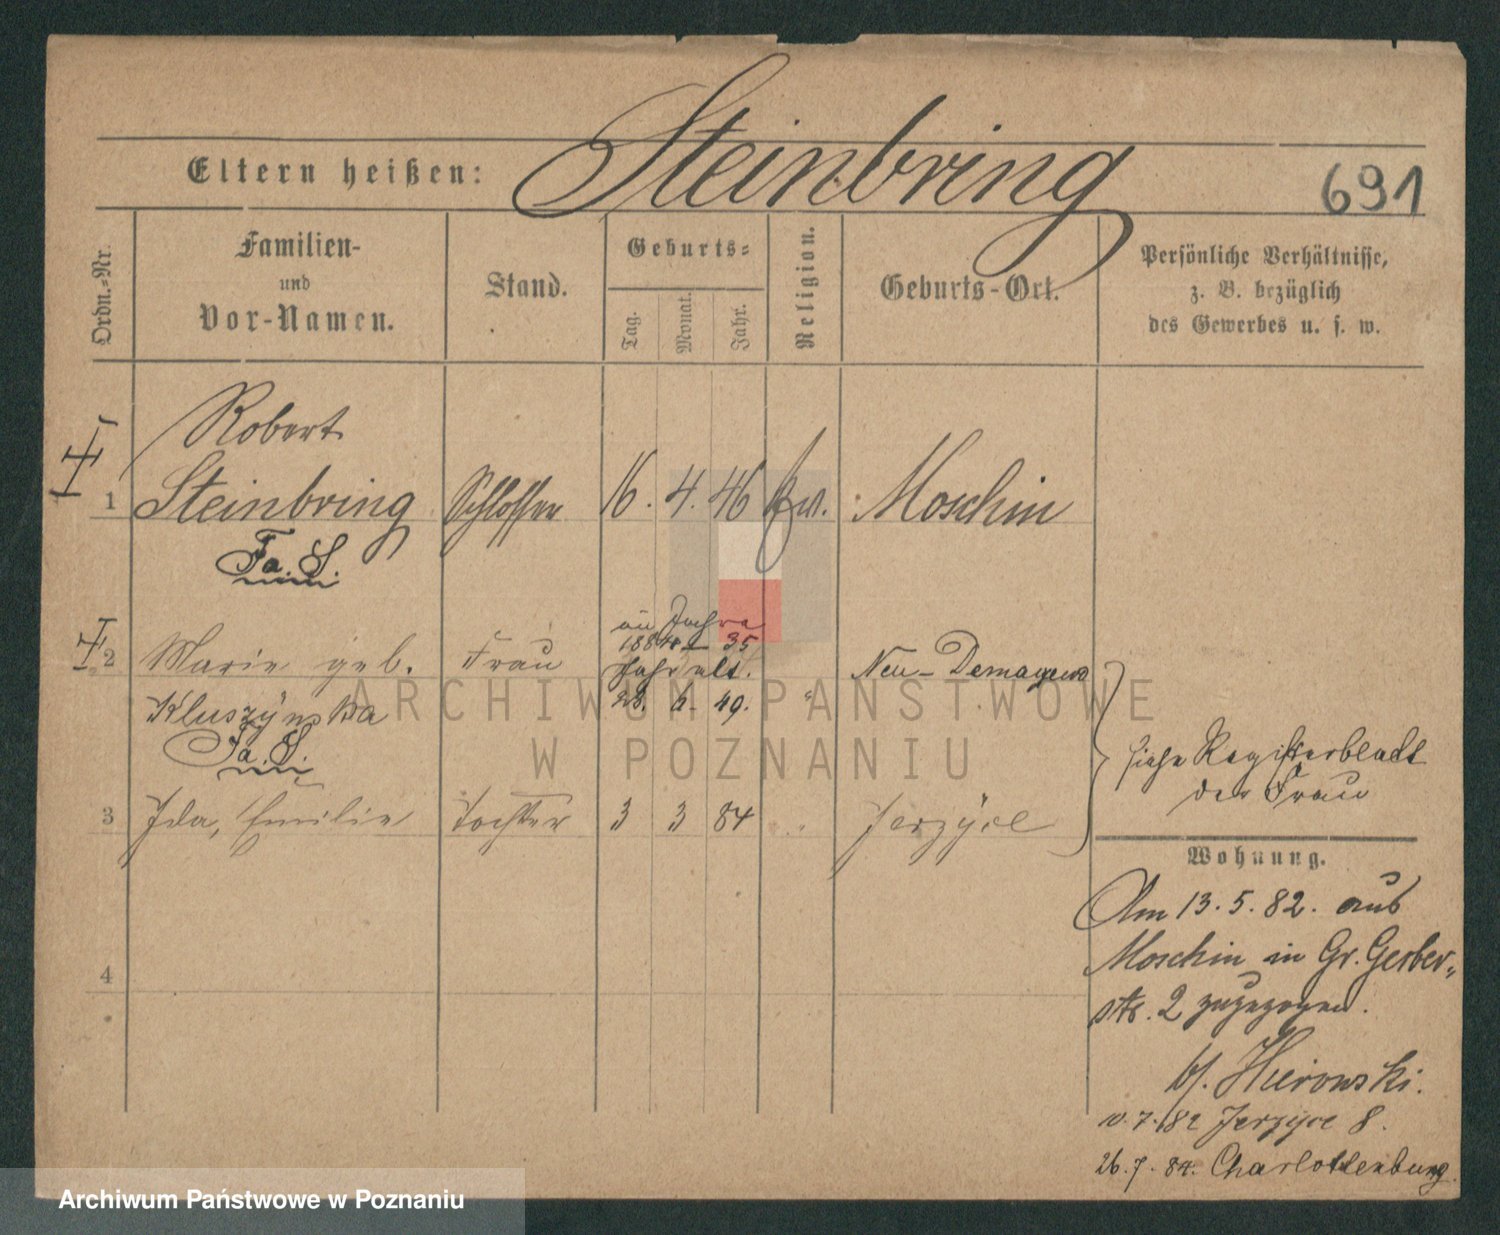 Steinbring
Eltern heißen:
691
Ordn.-Nr.
Familien-
und
Vor-Namen.
Stand.
Geburts-
Tag.
Monat.
Jahr.
Religion.
Geburts-Ort.
Persönliche Verhältnisse,
z. B. bezüglich
des Gewerbes u. s. w.
Robert
1 Steinbring Schlosser 16. 4. 46 Moschin
Fa. S.
im Jahre
1884 – 35
2 Marie geb. Frau Jahr alt. Neu-
Kluszÿnska 28. 6. 49. "
Fa. S.
siehe Registerblatt
der Frau
3 Ida, Emilie Tochter 3 3 84 " Jerzÿce
Wohnung.
Am 13. 5. 82. aus
Moschin in Gr. Gerber-
str. 2 zugezogen.
b/. Hierowski.
10. 7. 82 Jerzyce 8.
26. 7. 84. Charlottenburg.
4
ARCHIWUM PAŃSTWOWE
W POZNANIU
Archiwum Państwowe w Poznaniu